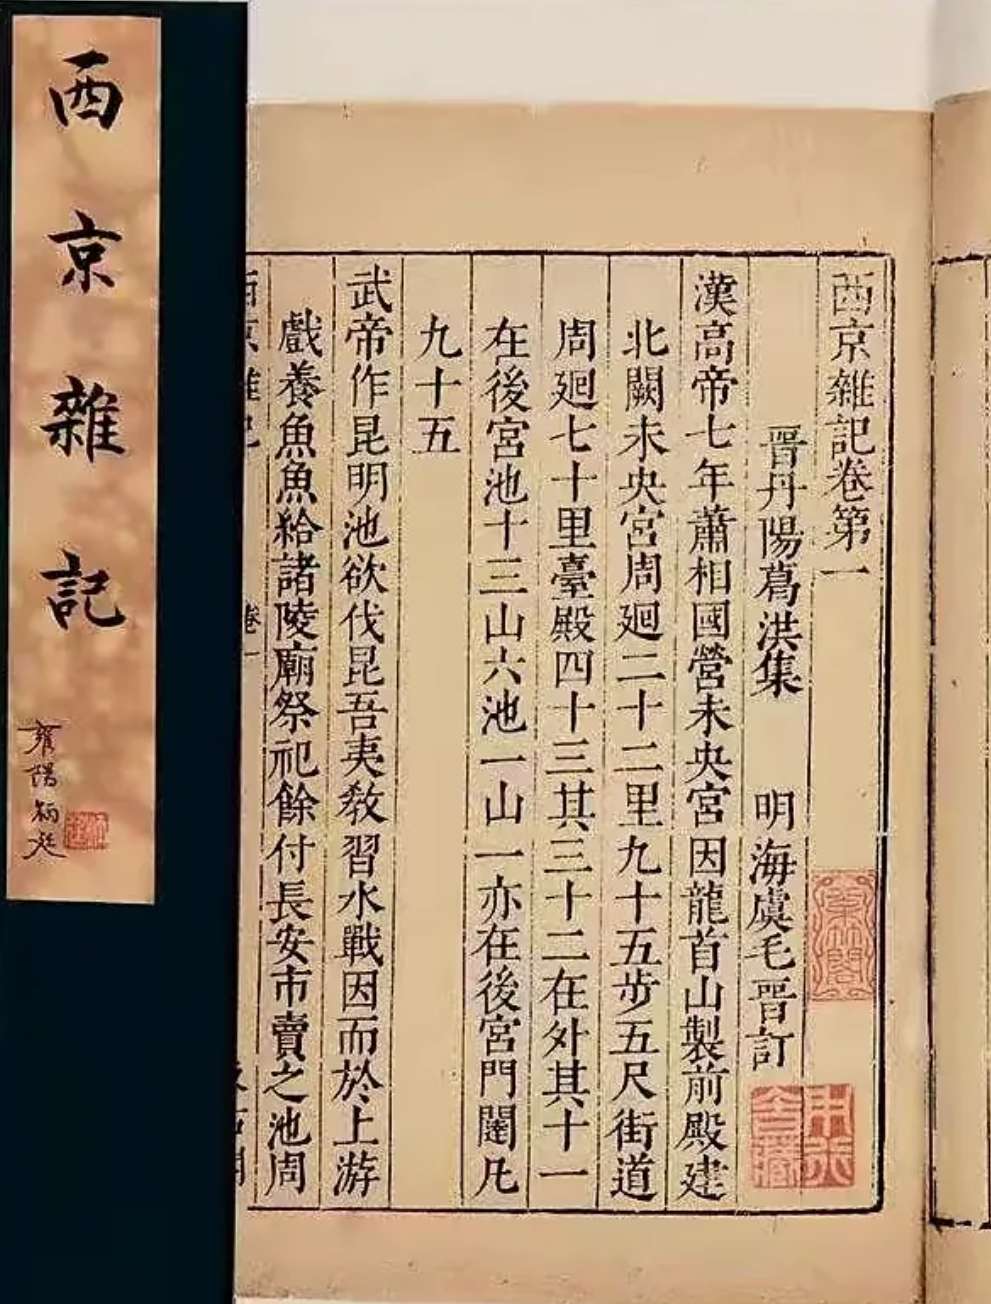 西京雜記
西京雜記卷第一
晋丹陽葛洪集 明海虞毛晋訂
漢高帝七年蕭相國營未央宮因龍首山製前殿建
北闕未央宮周廻二十二里九十五步五尺街道
周廻七十里臺殿四十三其三十二在外其十一
在後宮池十三山六池一山一亦在後宮門闥凡
九十五
武帝作昆明池欲伐昆吾夷教習水戰因而於上游
戲養魚魚給諸陵廟祭祀餘付長安市賣之池周
西京雜記
卷一